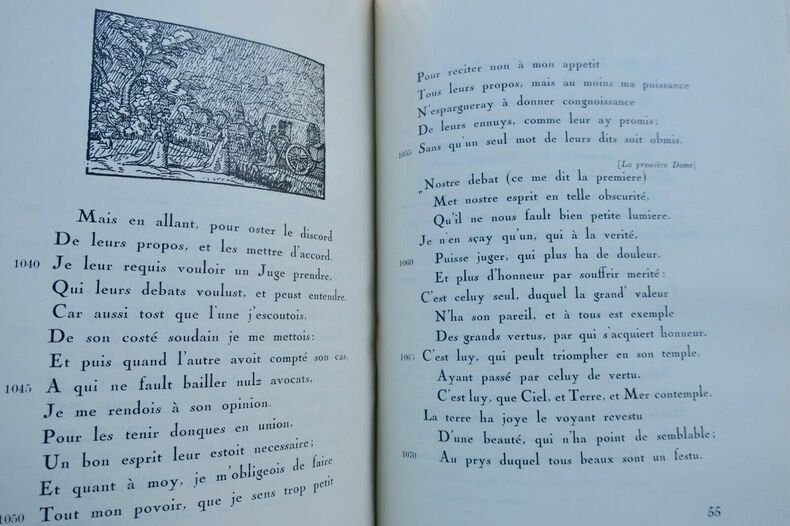 Mais en allant, pour oster le discord
De leurs propos, et les mettre d'accord,
1040 Je leur requis vouloir un Juge prendre,
Qui leurs debats voulust, et peust entendre.
Car aussi tost que l'une j'escoutois,
De son costé soudain je me mettois:
Et puis quand l'autre avoit compté son cas,
1045 A qui ne fault bailler nulz avocats,
Je me rendois à son opinion.
Pour les tenir donques en union,
Un bon esprit leur estoit necessaire;
Et quant à moy, je m'obligeois de faire
1050 Tout mon povoir, que je sens trop petit
Pour reciter non à mon appetit
Tous leurs propos, mais au moins ma puissance
N'espargneray à donner congnoissance
De leurs ennuys, comme leur ay promis;
1055 Sans qu'un seul mot de leurs dits soit obmis.
[La première Dame]
"Nostre debat (ce me dit la premiere)
Met nostre esprit en telle obscurité,
Qu'il ne nous fault bien petite lumiere.
Je n'en sçay qu'un, qui à la verité,
1060 Puisse juger, qui plus ha de douleur,
Et plus d'honneur par souffrir merité:
C'est celuy seul, duquel la grand' valeur
N'ha son pareil, et à tous est exemple
Des grands vertus, par qui s'acquiert honneur.
1065 C'est luy, qui peult triompher en son temple.
Ayant passé par celuy de vertu.
C'est luy, que Ciel, et Terre, et Mer contemple.
La terre ha joye le voyant revestu
D'une beauté, qui n'ha point de semblable;
1070 Au prys duquel tous beaux sont un festu.
55